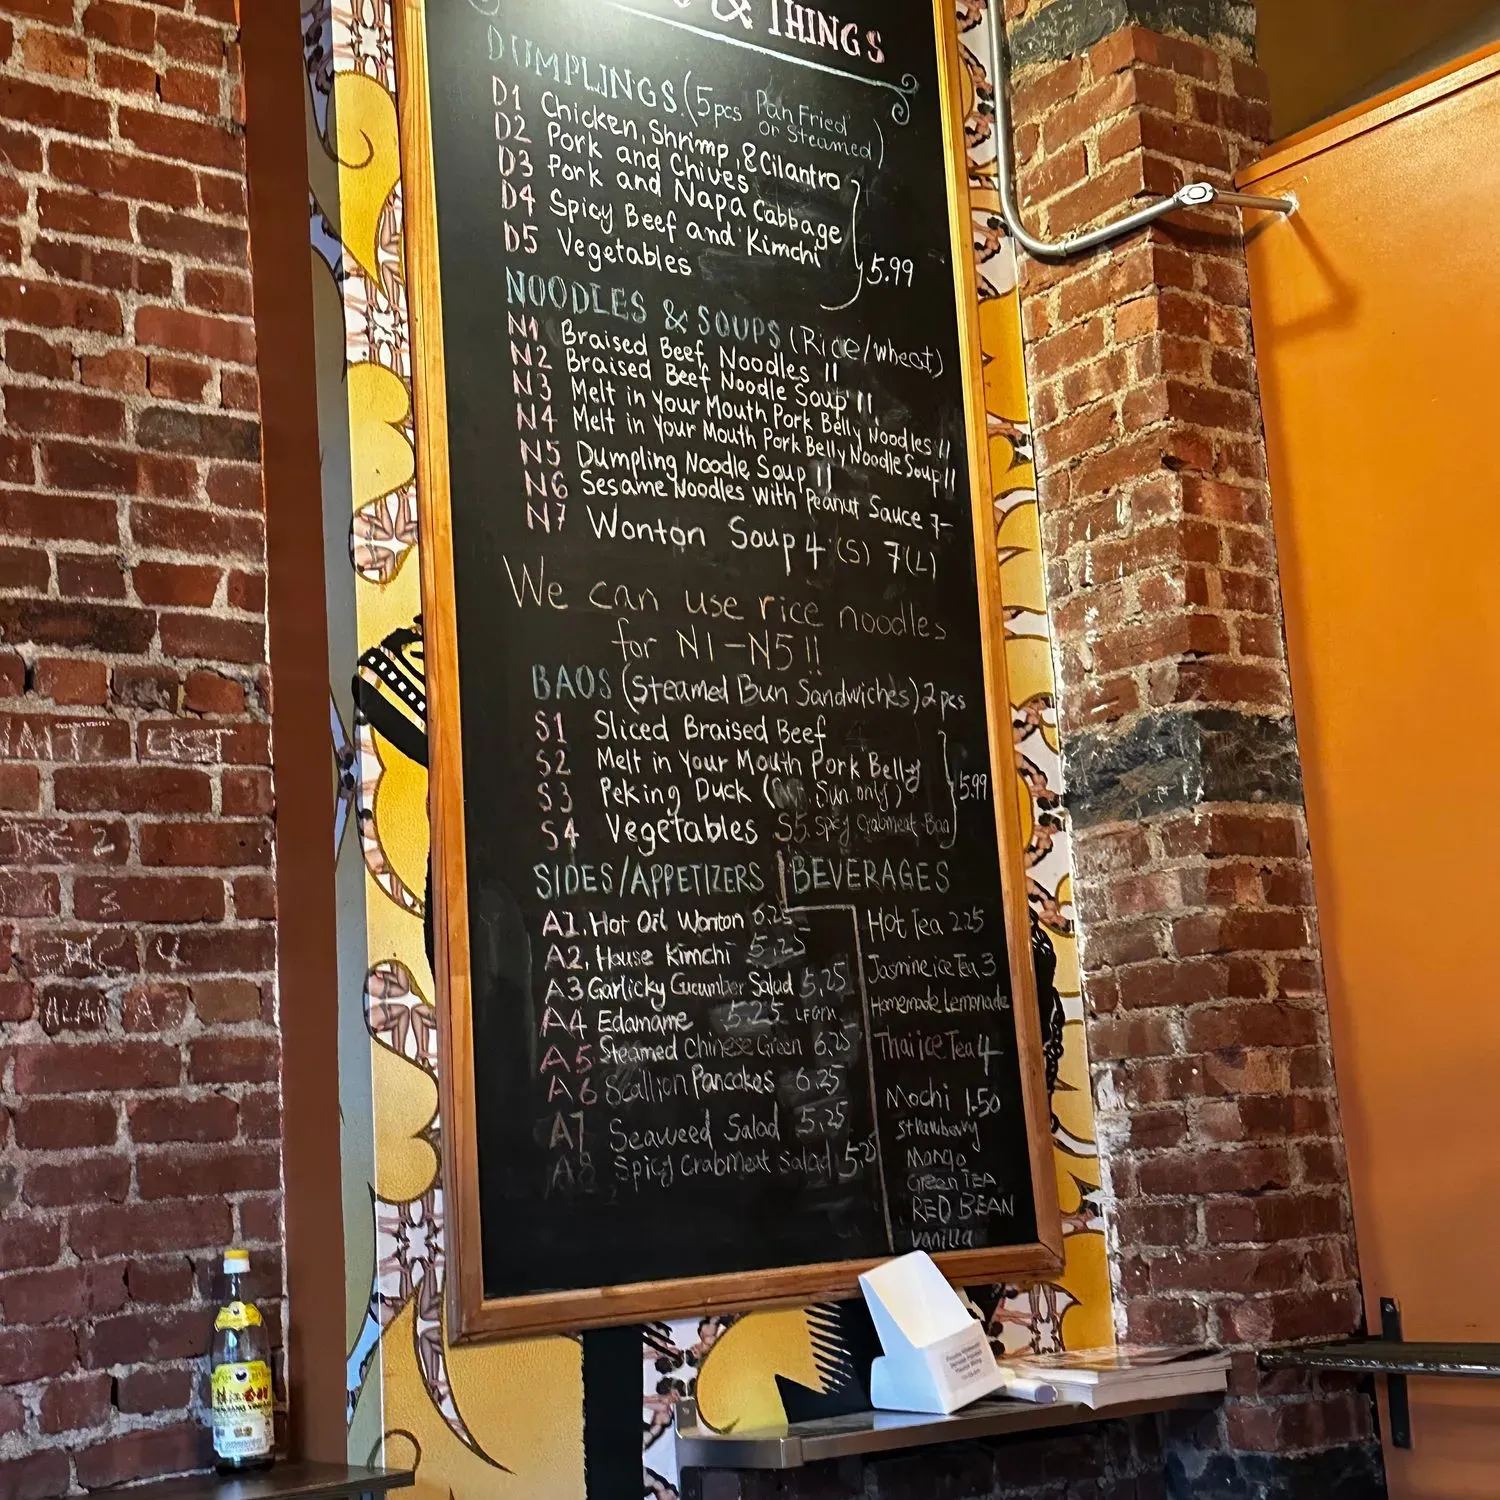 & THINGS
DUMPLINGS (5pcs Pan Fried or Steamed)
D1 Chicken, Shrimp, & Cilantro
D2 Pork and Chives
D3 Pork and Napa Cabbage
D4 Spicy Beef and Kimchi
D5 Vegetables
5.99
NOODLES & SOUPS (Rice/wheat)
N1 Braised Beef Noodles 11
N2 Braised Beef Noodle Soup 11
N3 Melt in your Mouth Pork Belly Noodles 11
N4 Melt in your Mouth Pork Belly Noodle Soup 11
N5 Dumpling Noodle Soup 11
N6 Sesame Noodles with Peanut Sauce 7-
N7 Wonton Soup 4 (S) 7 (L)
We can use rice noodles
for N1-N5!!
BAOS (Steamed Bun Sandwiches) 2 pcs
S1 Sliced Braised Beef
S2 Melt in your Mouth Pork Belly
S3 Peking Duck ( Sun. only)
5.99
S4 Vegetables S5. Spicy Crabmeat Bao
SIDES/APPETIZERS
A1. Hot Oil Wonton 6.25
A2. House Kimchi 5.25
A3 Garlicky Cucumber Salad 5.25
A4 Edamame 5.25
A5 Steamed Chinese Green 6.25
A6 Scallion Pancakes 6.25
A7 Seaweed Salad 5.25
A8 Spicy Crabmeat Salad 5.25
BEVERAGES
Hot Tea 2.25
Jasmine ice Tea 3
Homemade Lemonade
Thai ice Tea 4
Mochi 1.50
Strawberry
Mango
Green TEA
RED BEAN
Vanilla